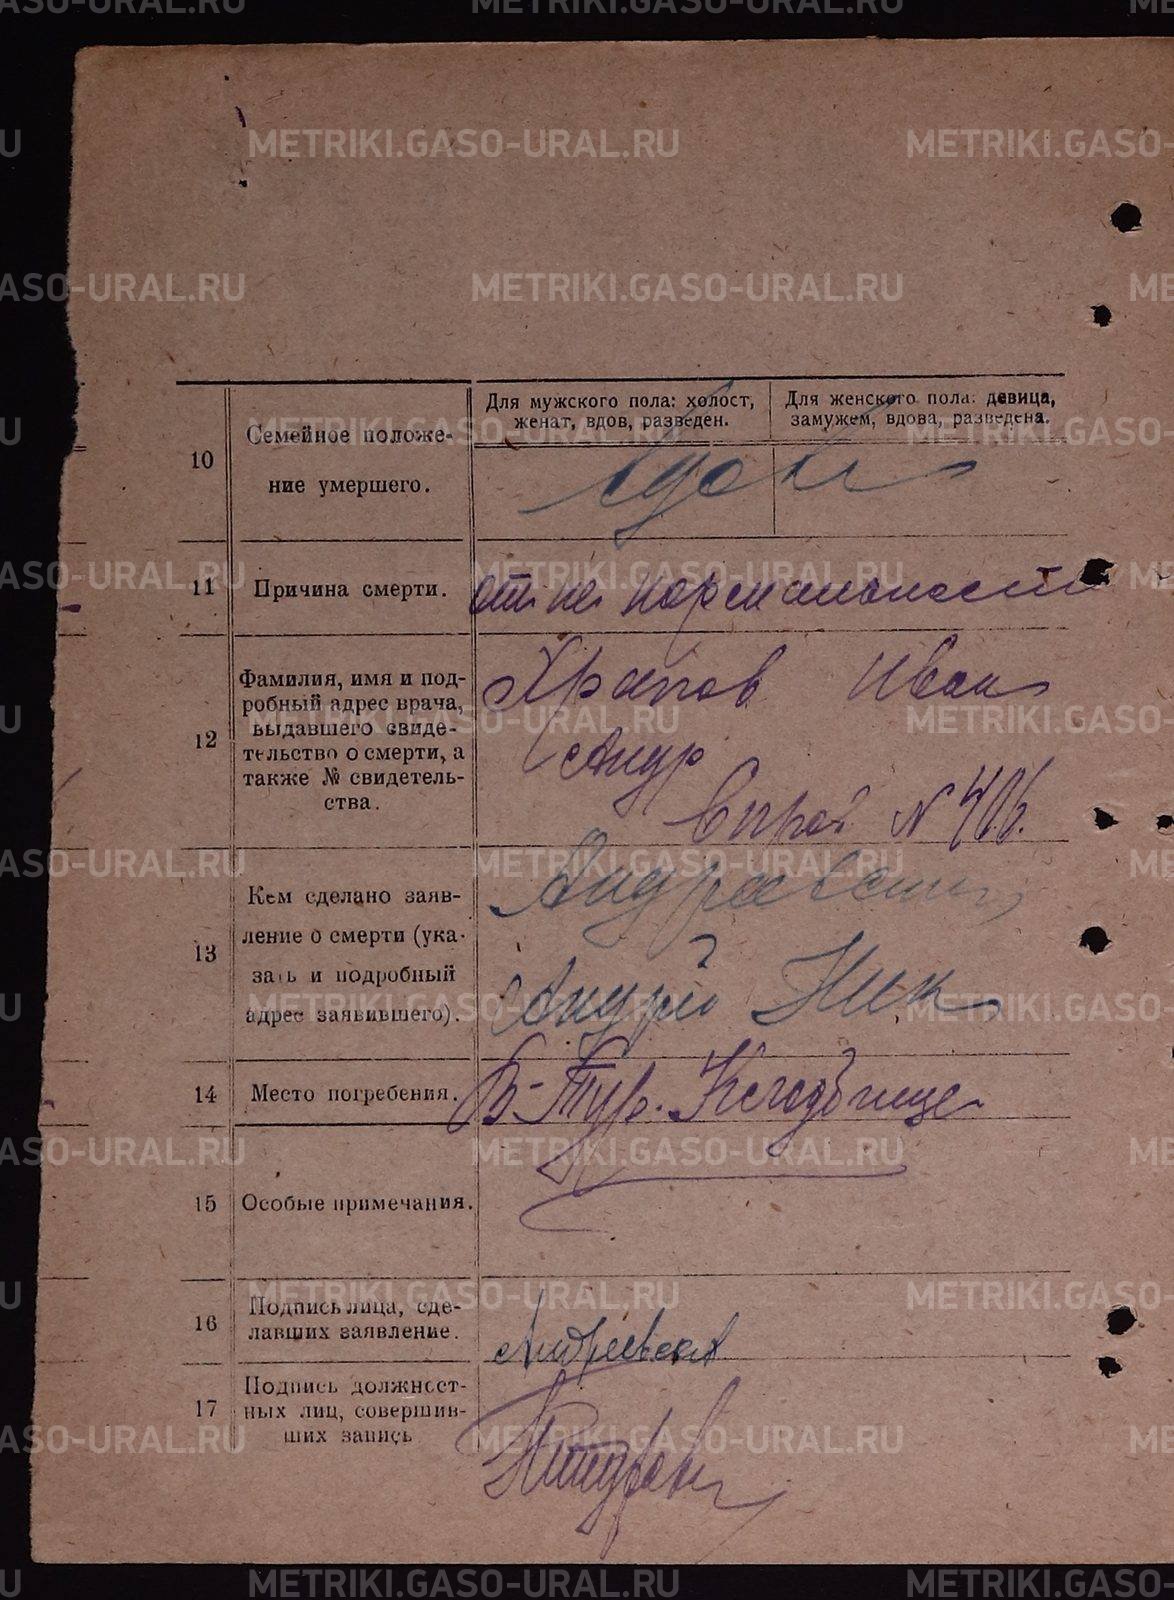 Для мужского пола: холост, женат, вдов, разведен.
Для женского пола: девица, замужем, вдова, разведена.
10
Семейное положе-
ние умершего.
вдов
11
Причина смерти.
от не нормальности
12
Фамилия, имя и под-
робный адрес врача,
выдавшего свиде-
тельство о смерти, а
также № свидетель-
ства.
Храпов Иван
Андр
N 406.
13
Кем сделано заяв-
ление о смерти (ука-
зать и подробный
адрес заявившего).
Андрей Ник
14
Место погребения.
В-Тур. Кладбище
15
Особые примечания.
16
Подпись лица, сде-
лавших заявление.
17
Подпись должност-
ных лиц, совершив-
ших запись
METRIKI.GASO-URAL.RU